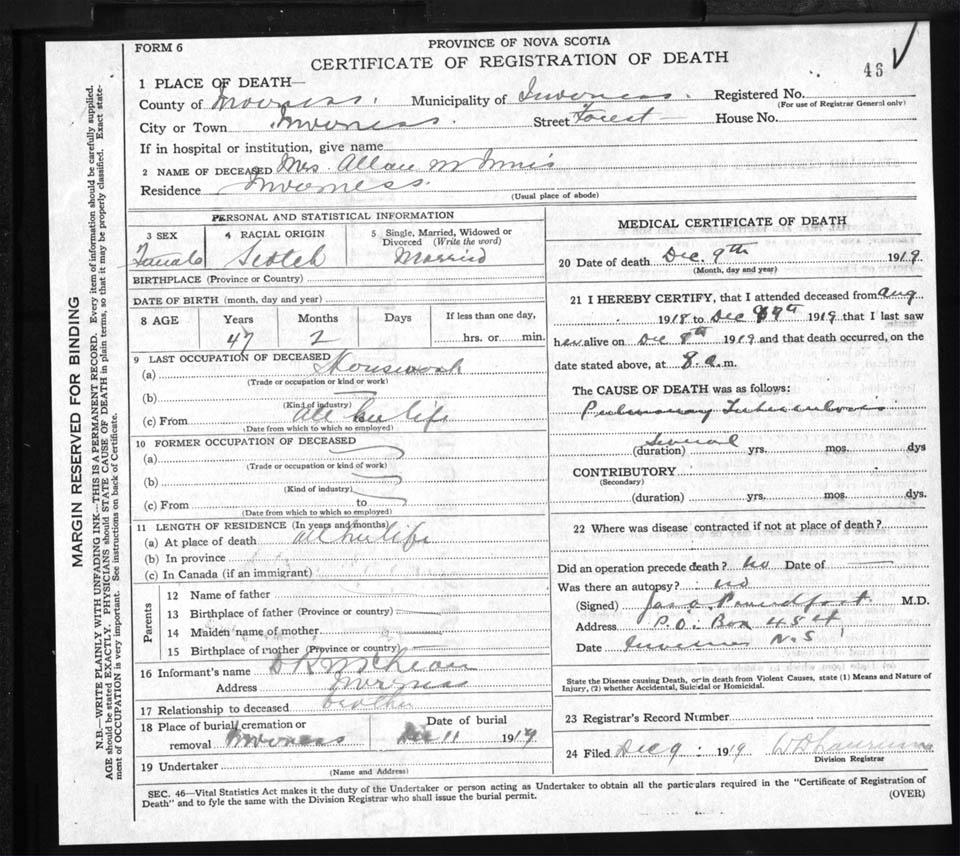 FORM 6
PROVINCE OF NOVA SCOTIA
CERTIFICATE OF REGISTRATION OF DEATH
46
1 PLACE OF DEATH—
County of Inverness. Municipality of Inverness. Registered No.
(For use of Registrar General only)
City or Town Inverness. Street Forest House No.
If in hospital or institution, give name
2 NAME OF DECEASED Mrs. Allan McInnis
Residence Inverness.
(Usual place of abode)
PERSONAL AND STATISTICAL INFORMATION
3 SEX 4 RACIAL ORIGIN 5 Single, Married, Widowed or Divorced (Write the word)
Female Scotch Married
BIRTHPLACE (Province or Country)
DATE OF BIRTH (month, day and year)
8 AGE Years Months Days If less than one day,
47 2 hrs. or min.
9 LAST OCCUPATION OF DECEASED
(a) Housework
(Trade or occupation or kind or work)
(b)
(Kind of industry)
(c) From all her life
(Date from which to which so employed)
10 FORMER OCCUPATION OF DECEASED
(a)
(Trade or occupation or kind of work)
(b)
(Kind of industry)
(c) From to
(Date from which to which so employed)
11 LENGTH OF RESIDENCE (In years and months)
(a) At place of death all her life
(b) In province
(c) In Canada (if an immigrant)
Parents
12 Name of father
13 Birthplace of father (Province or country)
14 Maiden name of mother
15 Birthplace of mother (Province or country)
16 Informant's name D R McLean
Address Inverness
17 Relationship to deceased brother
18 Place of burial, cremation or removal Inverness Date of burial Dec 11 1919
19 Undertaker
(Name and Address)
MEDICAL CERTIFICATE OF DEATH
20 Date of death Dec. 9th 1919
(Month, day and year)
21 I HEREBY CERTIFY, that I attended deceased from Aug
1918 to Dec 9th 1919 that I last saw
her alive on Dec 8th 1919 and that death occurred, on the
date stated above, at 8 a.m.
The CAUSE OF DEATH was as follows:
Pulmonary Tuberculosis
Several
(duration) yrs. mos. dys
CONTRIBUTORY
(Secondary)
(duration) yrs. mos. dys.
22 Where was disease contracted if not at place of death?
Did an operation precede death? No Date of
Was there an autopsy? no
(Signed) Jas. O. Proudfoot M.D.
Address P.O. Box 454
Date Inverness N.S.
State the Disease causing Death, or in death from Violent Causes, state (1) Means and Nature of
Injury, (2) whether Accidental, Suicidal or Homicidal.
23 Registrar's Record Number
24 Filed Dec 9 1919
Division Registrar
SEC. 46—Vital Statistics Act makes it the duty of the Undertaker or person acting as Undertaker to obtain all the particulars required in the "Certificate of Registration of
Death" and to fyle the same with the Division Registrar who shall issue the burial permit. (OVER)
MARGIN RESERVED FOR BINDING
N.B.—WRITE PLAINLY WITH UNFADING INK—THIS IS A PERMANENT RECORD. Every item of information should be carefully supplied.
AGE should be stated EXACTLY. PHYSICIANS should STATE CAUSE OF DEATH in plain terms, so that it may be properly classified. Exact state-
ment of OCCUPATION is very important. See instructions on back of Certificate.